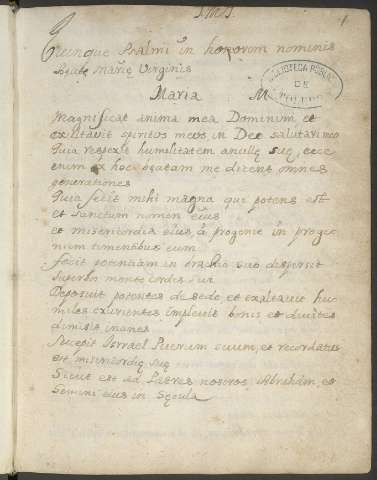 J.M.J. 1
Quinque Psalmi in honorem nominis
Beatę Marię Virginis
BIBLIOTECA PUBLICA
DE
TOLEDO
Maria M
Magnificat anima mea Dominum et
exultavit spiritus meus in Deo salutari meo
Quia respexit humilitatem ancillę suę, ecce
enim ex hoc beatam me dicent omnes
generationes
Quia fecit mihi magna qui potens est
et sanctum nomen eius
et misericordia eius á progenie in proge
niem timentibus eum
fecit potentiam in brachio suo dispersit
superbos mente cordis sui
Deposuit potentes de sede, et exaltavit hu
miles exurientes implevit bonis et divites
dimisit inanes
Sucepit Isrrael Puerum suum, et recordatus
est misericordię suę
Sicut est ad Patres nostros Abraham, et
Semini eius in Sęcula